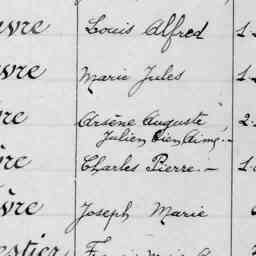 uvre Louis Alfred 1
uvre Marie Jules 1
vre Arsène Auguste 2
Julien Bien Aimé.-
vre Charles Pierre.- 1
vre Joseph Marie
estier